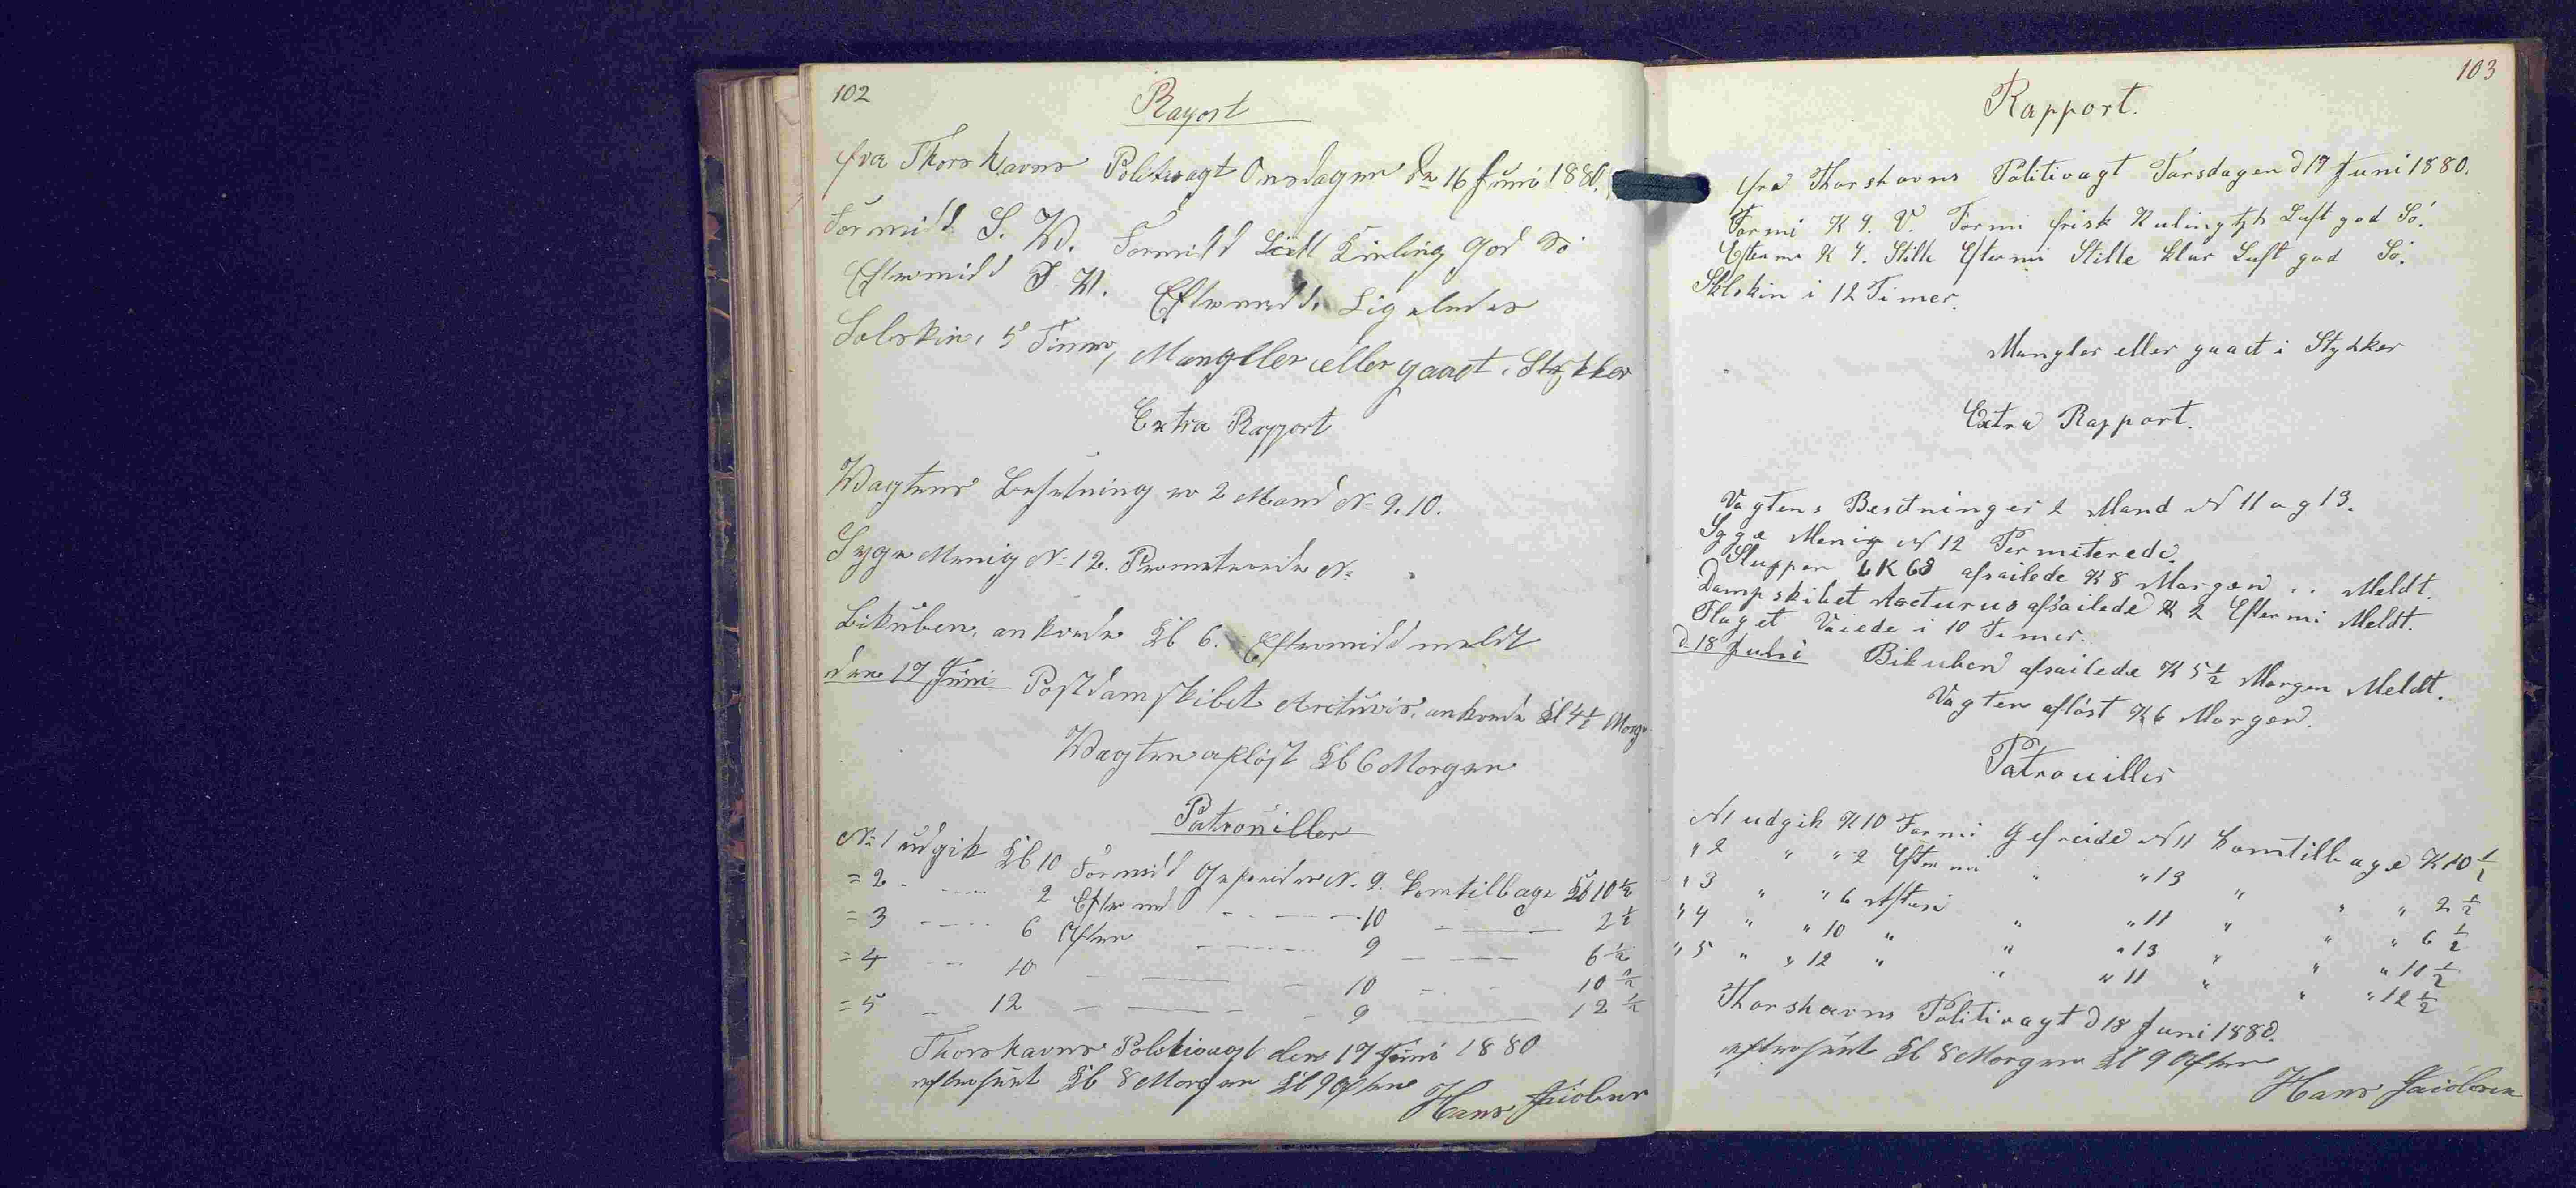 102
Raport
fra Thorshavns Politivagt Onsdagen den 16 Juni 1880.
Formidd S. W. Formidd Lidt Kuling God Sö
Eftermidd S. W. Eftermidd. Ligeledes
Solskin i 5 Timer, Mangller eller gaaet i Stykker
Extra Rapport
Wagtens Besetning er 2 Mand No 9. 10.
Syge Menig No 12. Permeterede No
Bikuben, ankrede Kl 6. Eftermidd meldt
den 17 Juni Postdamskibet Arcturus, ankrede Kl 4½ Morg
Wagten aflöst Kl 6 Morgen
Patrouiller
No 1 udgik Kl 10 Formidd Gefreider N. 9. komtilbage Kl 10½
= 2 - 2 Eftermd - 10 - 2½
= 3 - 6 Aften - 9 - 6½
= 4 - 10 - 10 - 10½
= 5 - 12 - 9 - 12½
Thorshavns Politivagt den 17 Juni 1880
efterseet Kl 8 Morgen Kl 9 Aften
Hans Jacobsen
103
Rapport.
fra Thorshavns Politivagt Torsdagen d 17 Juni 1880.
Formi K 4. V. Formi frisk Kuling Luft god Sö.
Eftermi K 4. Stille Eftermi Stille klar Luft god Sö.
Solskin i 12 Timer.
Mangler eller gaaet i Stykker
Extra Rapport.
Vagtens Besetninger 2 Mand N 11 og 13.
Syge Menig N 12 Permiterede.
Sluppen LK 68 afsailede K 8 Morgen .. Meldt.
Dampskibet Arcturus afsailede K 2 Eftermi Meldt.
Flaget Vaiede i 10 Timer..
d. 18 Juli Bikuben afsailede K 5½ Morgen Meldt.
Vagten aflöst K 6 Morgen.
Patrouilles
N1 udgik K 10 Formi Gefreide N 11 komtilbage K 10½
" 2 " " 2 Eftermi " " 13 " " " 2½
" 3 " " 6 Aften " " 11 " " " 6½
" 4 " " 10 " " " 13 " " " 10½
" 5 " " 12 " " " 11 " " " 12½
Thorshavns Politivagt d 18 Juni 1880.
efterseet Kl 8 Morgen Kl 9 Aften
Hans Jacobsen